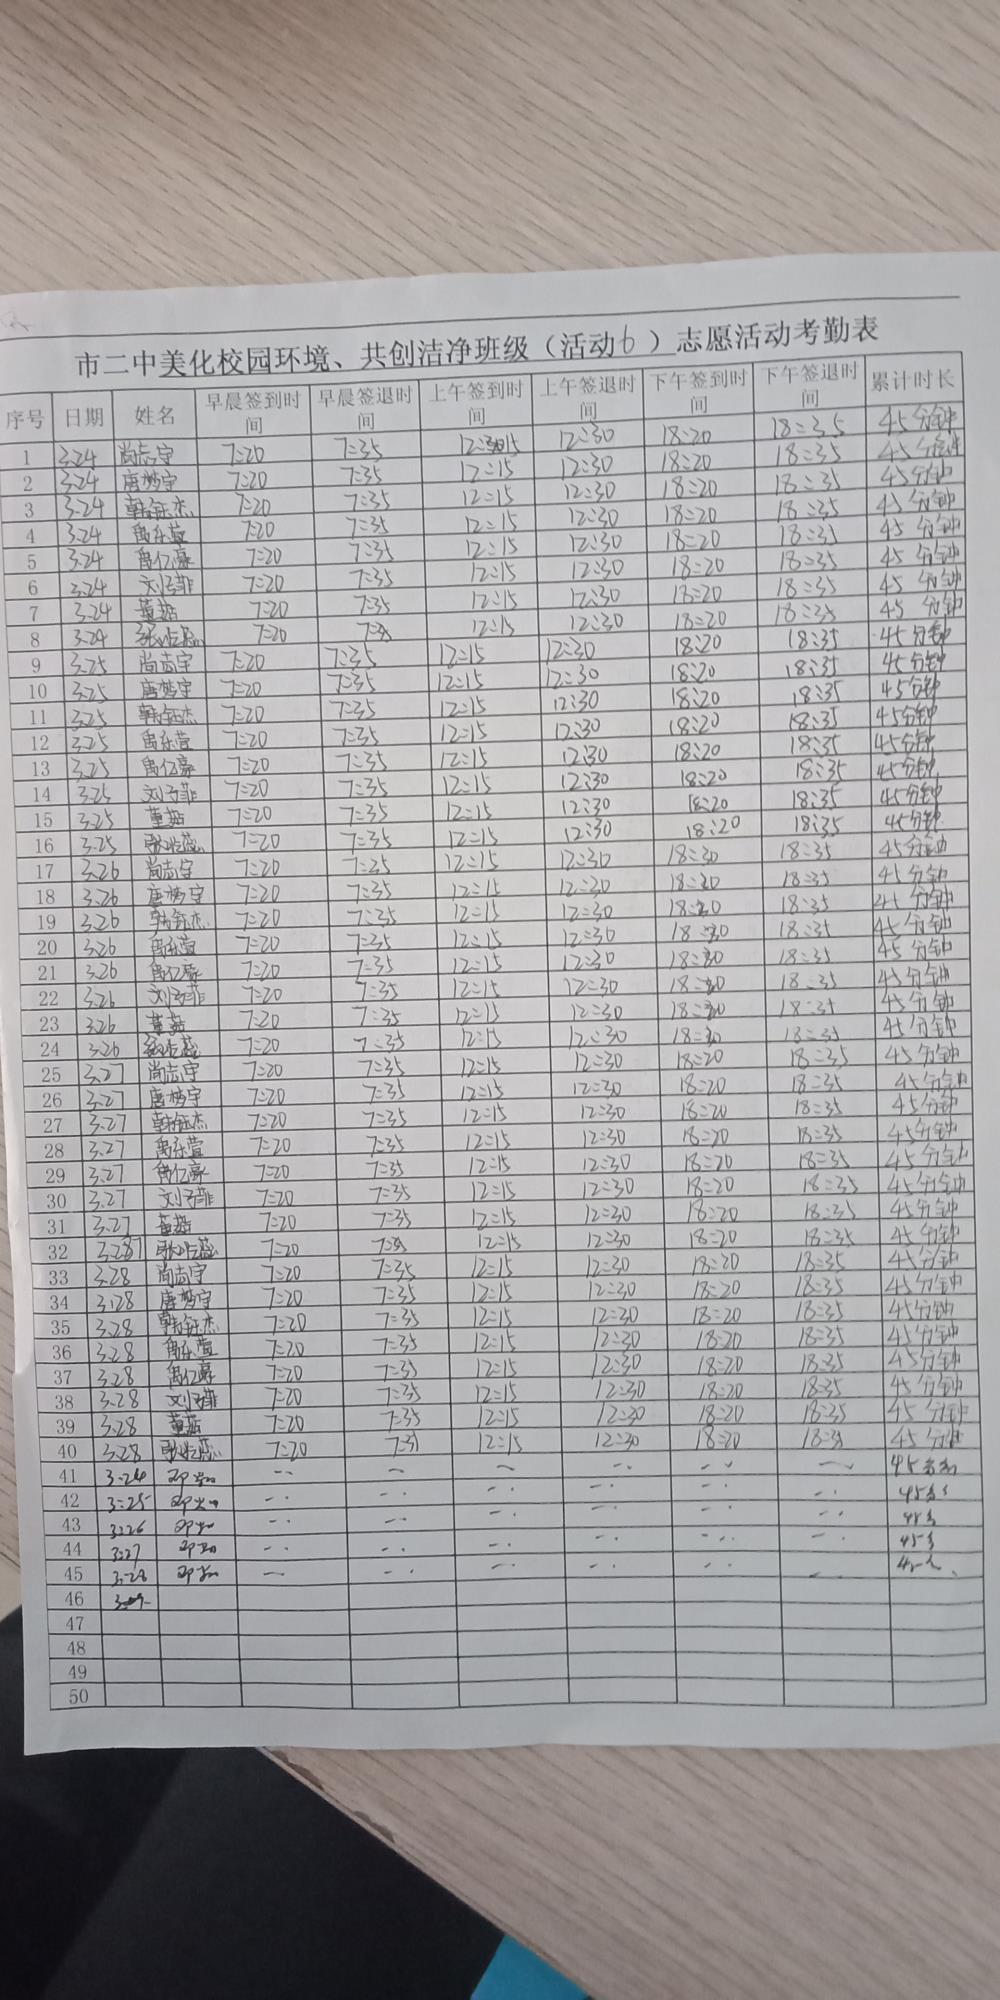 市二中美化校园环境、共创洁净班级（活动6）志愿活动考勤表
序号 日期 姓名 早晨签到时间 早晨签退时间 上午签到时间 上午签退时间 下午签到时间 下午签退时间 累计时长
1 3.24 尚志宇 7:20 7:35 12:15 12:30 18:20 18:35 45分钟
2 3.24 唐梦宇 7:20 7:35 12:15 12:30 18:20 18:35 45分钟
3 3.24 韩钰杰 7:20 7:35 12:15 12:30 18:20 18:35 45分钟
4 3.24 禹乐萱 7:20 7:35 12:15 12:30 18:20 18:35 45分钟
5 3.24 禹亿豪 7:20 7:35 12:15 12:30 18:20 18:35 45分钟
6 3.24 刘子菲 7:20 7:35 12:15 12:30 18:20 18:35 45分钟
7 3.24 董茹 7:20 7:35 12:15 12:30 18:20 18:35 45分钟
8 3.24 7:20 7:35 12:15 12:30 18:20 18:35 45分钟
9 3.25 尚志宇 7:20 7:35 12:15 12:30 18:20 18:35 45分钟
10 3.25 唐梦宇 7:20 7:35 12:15 12:30 18:20 18:35 45分钟
11 3.25 韩钰杰 7:20 7:35 12:15 12:30 18:20 18:35 45分钟
12 3.25 禹乐萱 7:20 7:35 12:15 12:30 18:20 18:35 45分钟
13 3.25 禹亿豪 7:20 7:35 12:15 12:30 18:20 18:35 45分钟
14 3.25 刘子菲 7:20 7:35 12:15 12:30 18:20 18:35 45分钟
15 3.25 董茹 7:20 7:35 12:15 12:30 18:20 18:35 45分钟
16 3.25 7:20 7:35 12:15 12:30 18:20 18:35 45分钟
17 3.26 尚志宇 7:20 7:35 12:15 12:30 18:20 18:35 45分钟
18 3.26 唐梦宇 7:20 7:35 12:15 12:30 18:20 18:35 45分钟
19 3.26 韩钰杰 7:20 7:35 12:15 12:30 18:20 18:35 45分钟
20 3.26 禹乐萱 7:20 7:35 12:15 12:30 18:20 18:35 45分钟
21 3.26 禹亿豪 7:20 7:35 12:15 12:30 18:20 18:35 45分钟
22 3.26 刘子菲 7:20 7:35 12:15 12:30 18:20 18:35 45分钟
23 3.26 董茹 7:20 7:35 12:15 12:30 18:20 18:35 45分钟
24 3.26 7:20 7:35 12:15 12:30 18:20 18:35 45分钟
25 3.27 尚志宇 7:20 7:35 12:15 12:30 18:20 18:35 45分钟
26 3.27 唐梦宇 7:20 7:35 12:15 12:30 18:20 18:35 45分钟
27 3.27 韩钰杰 7:20 7:35 12:15 12:30 18:20 18:35 45分钟
28 3.27 禹乐萱 7:20 7:35 12:15 12:30 18:20 18:35 45分钟
29 3.27 禹亿豪 7:20 7:35 12:15 12:30 18:20 18:35 45分钟
30 3.27 刘子菲 7:20 7:35 12:15 12:30 18:20 18:35 45分钟
31 3.27 董茹 7:20 7:35 12:15 12:30 18:20 18:35 45分钟
32 3.27 7:20 7:35 12:15 12:30 18:20 18:35 45分钟
33 3.28 尚志宇 7:20 7:35 12:15 12:30 18:20 18:35 45分钟
34 3.28 唐梦宇 7:20 7:35 12:15 12:30 18:20 18:35 45分钟
35 3.28 韩钰杰 7:20 7:35 12:15 12:30 18:20 18:35 45分钟
36 3.28 禹乐萱 7:20 7:35 12:15 12:30 18:20 18:35 45分钟
37 3.28 禹亿豪 7:20 7:35 12:15 12:30 18:20 18:35 45分钟
38 3.28 刘子菲 7:20 7:35 12:15 12:30 18:20 18:35 45分钟
39 3.28 董茹 7:20 7:35 12:15 12:30 18:20 18:35 45分钟
40 3.28 7:20 7:35 12:15 12:30 18:20 18:35 45分钟
41 3:24 45
42 3:25 45
43 3:26 45
44 3:27 45
45 3:28
46
47
48
49
50